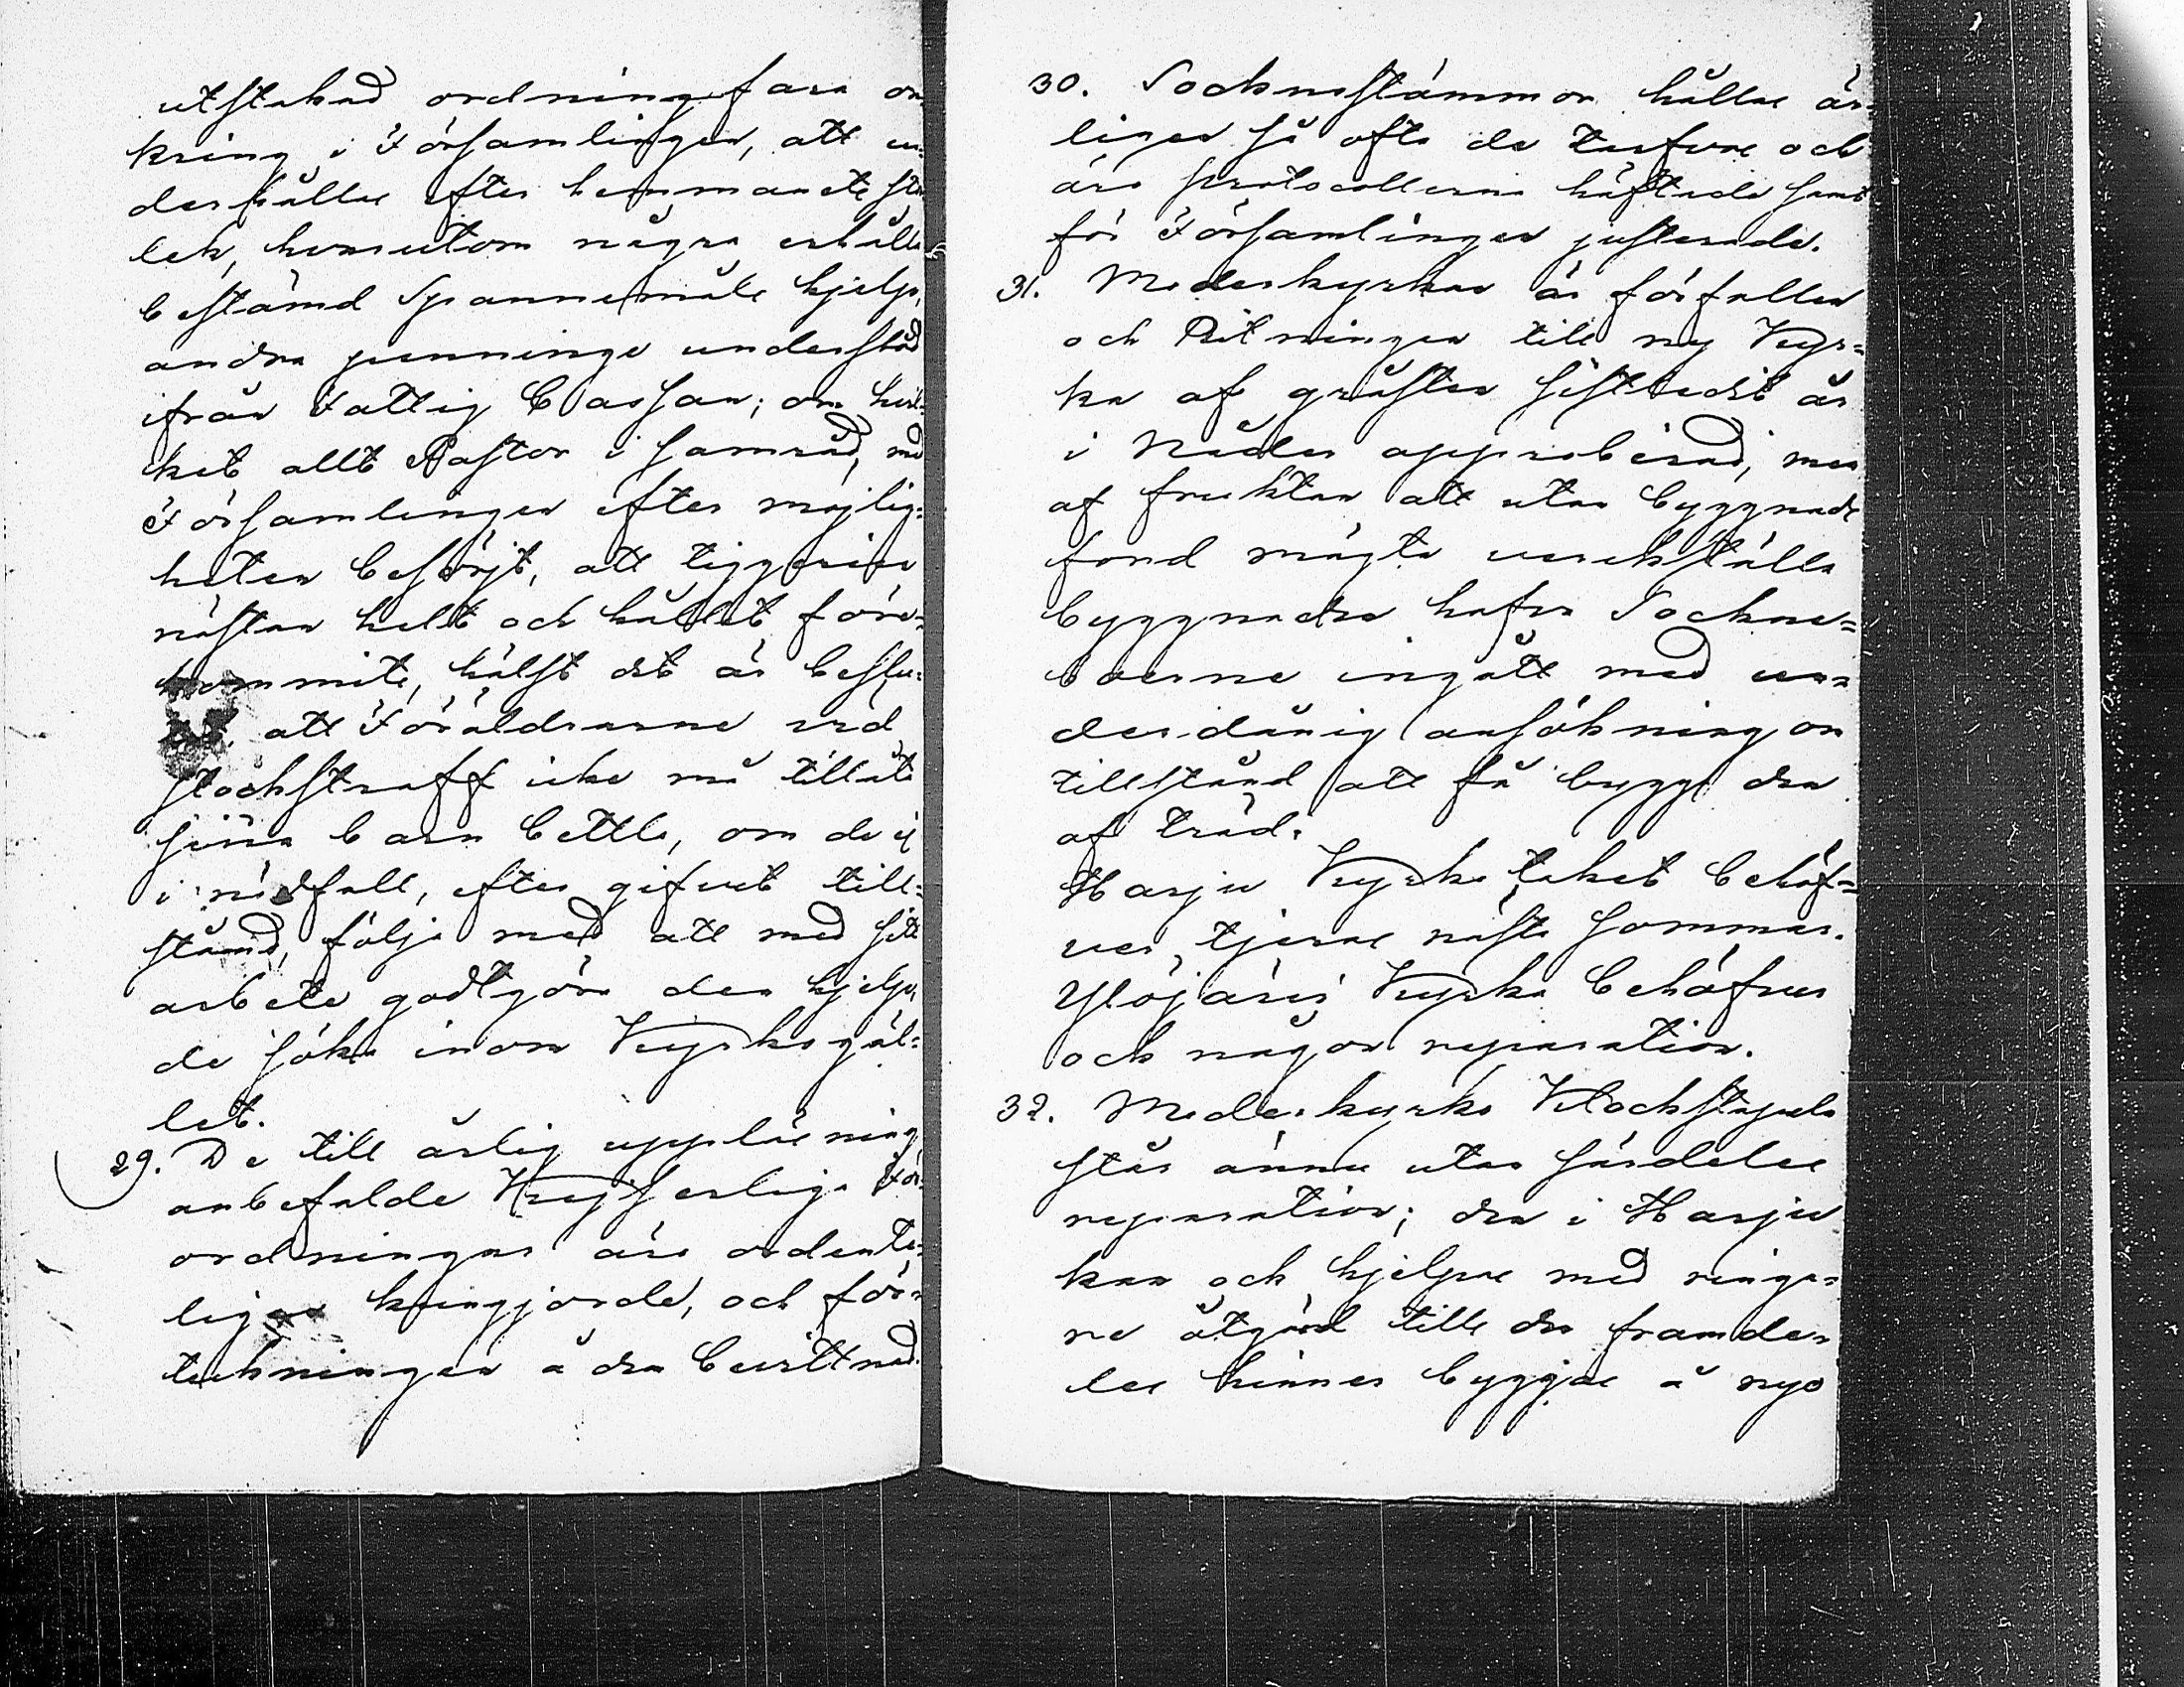 utstakad ordning fara om
kring i Församlingen, att un
derhållas efter hemmanets stor
lek, hvarutom några erhålla
bestämd Spannemåls hjelp,
andra penninge understöd
ifrån Fattig Cassan; om hvil=
ket allt Pastor i samråd, med
Församlingen efter möjlig=
heten besörjt, att tiggeriet
nästan helt och hållet före=
kommits, hälst det är beslu=
tit, att Föräldrarne vid
stockstraff icke må tillåta
sina barn bettla, om de ej
i nödfall, efter gifvet till=
stånd, följa med att med sitt
arbete godtgöra den hjelp,
de söka inom Kyrkogäl=
let.
29. De till årlig uppläsning
anbefalde Kejserliga För=
ordningar äro ordente=
ligen kungjorde, och för=
tekningen å dem bevittnad.
30. Socknestämmor hållas år=
ligen så ofta de tarfvas och
äro protocollerna häftade samt
för Församlingen justerade.
31. Moderkyrkan är förfallen
och Ritningen till ny Kyr=
ka af gråsten sistledit år
i Nåder approberad, men
af fruktan att utan byggnads
fond mågte verkställa
byggnaden hafva Sockne=
boerne ingått med un=
derdånig ansökning om
tillstånd att få bygga den
af träd.
Harju Kyrko taket behöf=
ver tjeras nästa sommar.
Ylöjärvi Kyrka behöfver
ock någon reparation.
32. Moderkyrko Klockstapeln
står ännu utan särdeles
reparation; den i Harju
kan ock hjelpas med ringa=
re åtgärd till des framde=
les hinner byggas å nyo